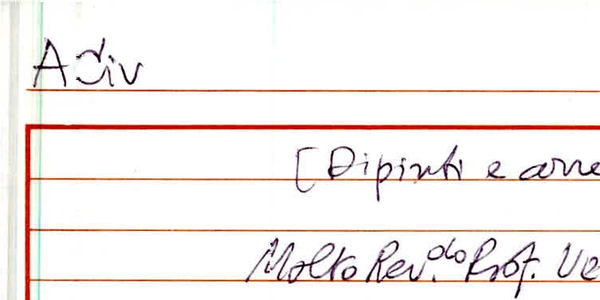 [Dipinti e arre
Molto Rev.do Prof. Ve